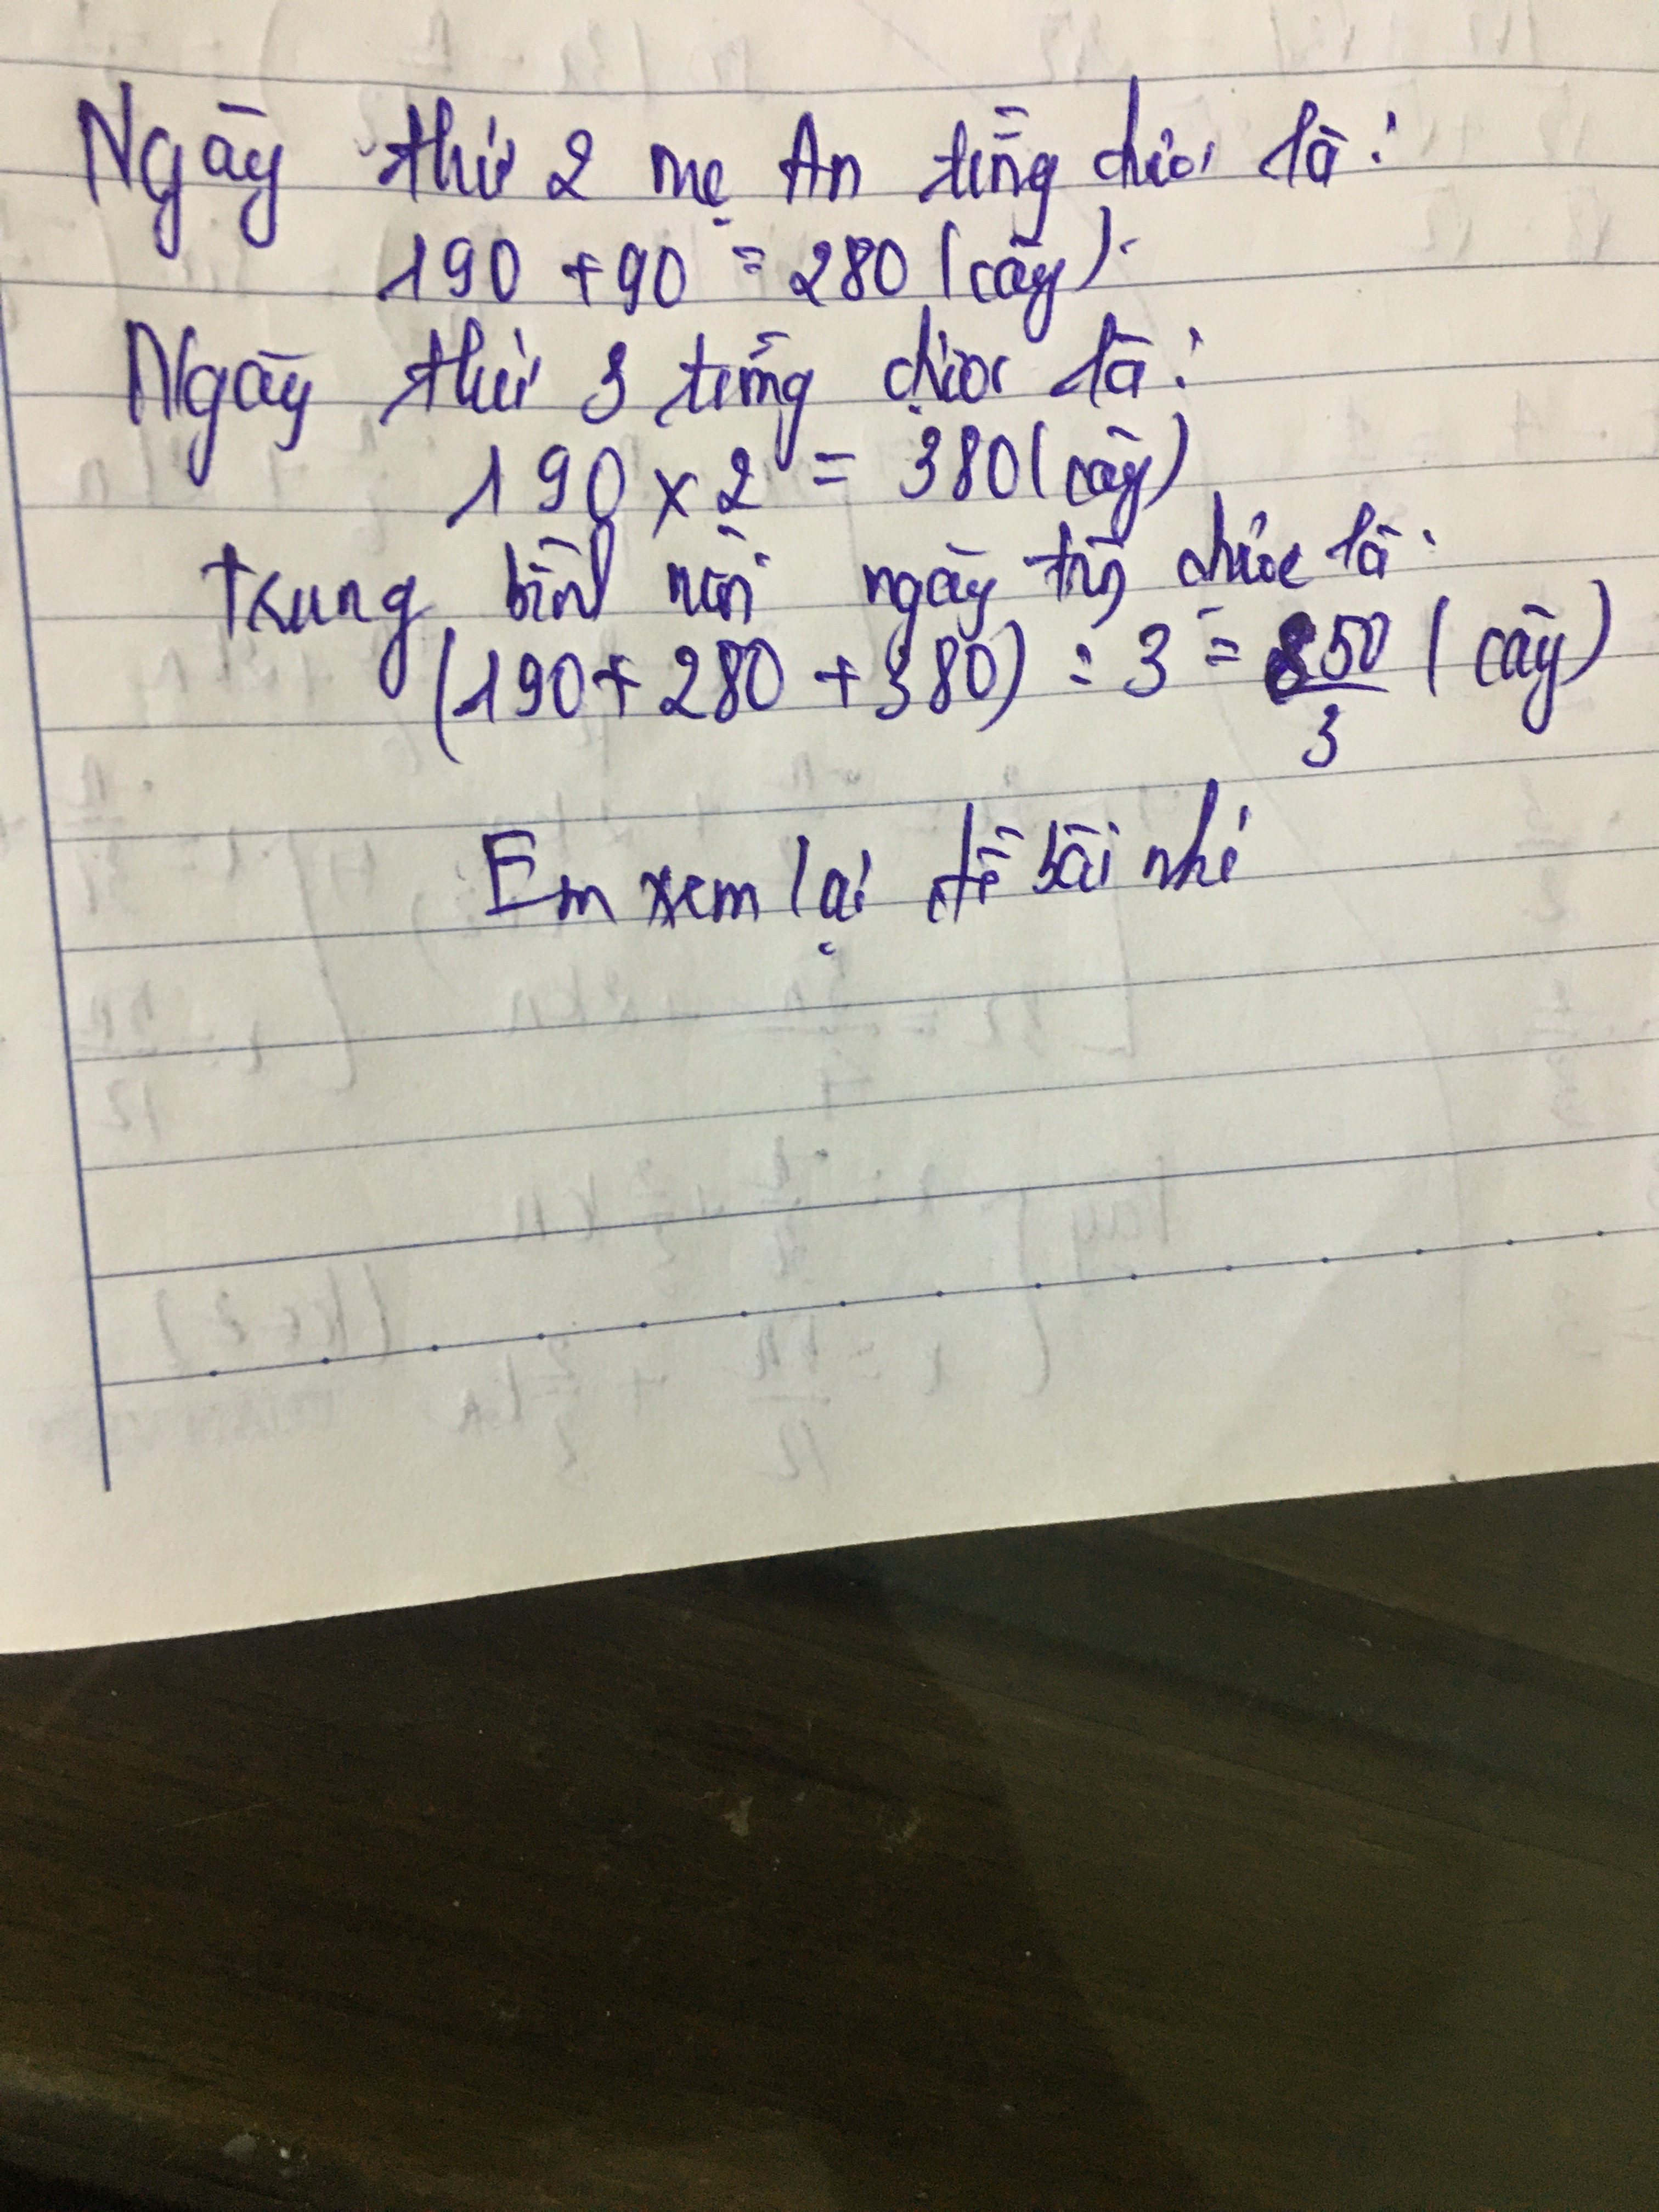 Ngày thứ 2 mẹ An trồng được là:
190 + 90 = 280 (cây).
Ngày thứ 3 trồng được là:
190 x 2 = 380 (cây)
Trung bình mỗi ngày được là:
(190 + 280 + 380) : 3 = 850/3 (cây)
Em xem lại đề bài nhé